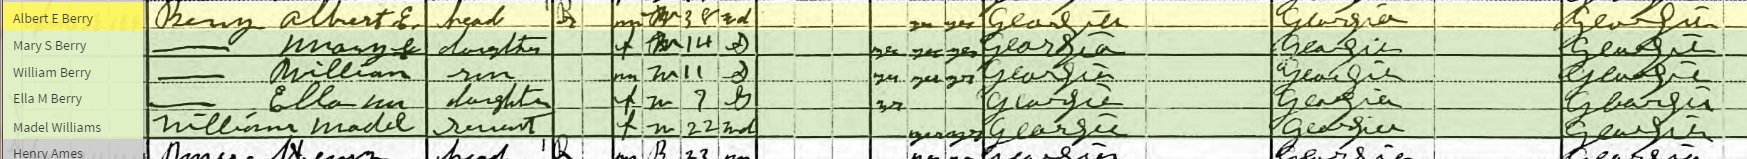 Albert E Berry Berry Albert E. head R m 38 wd yes yes Georgia Georgia Georgia
Mary S Berry — Mary S daughter f 14 S yes yes yes Georgia Georgia Georgia
William Berry — William son m M 11 S yes yes yes Georgia Georgia Georgia
Ella M Berry — Ella M daughter f M 7 S yes Georgia Georgia Georgia
Madel Williams William Madel servant f M 22 wd yes yes Georgia Georgia Georgia
Henry Ames Henry head R m B 23 Georgia Georgia